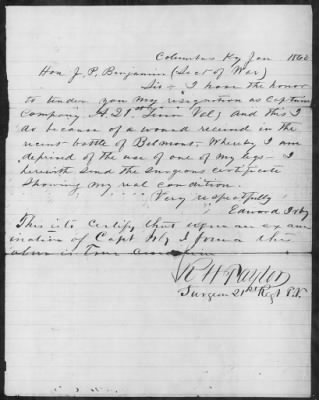 Columbus Ky Jan 186
Hon J. P. Benjamin (Sect of War)
Sir - I have the honor
to tender you my resignation as Captain
Company A. 21st Tenn Vol, and this I
do because of a wound received in the
recent battle of Belmont, Whereby I am
deprived of the use of one of my legs - I
herewith send the surgeons certificate
showing my real condition.
Very respectfully
Edward
This is to Certify that upon an exam
ination of Capt I found the
above is True
Surgeon 21st Regt